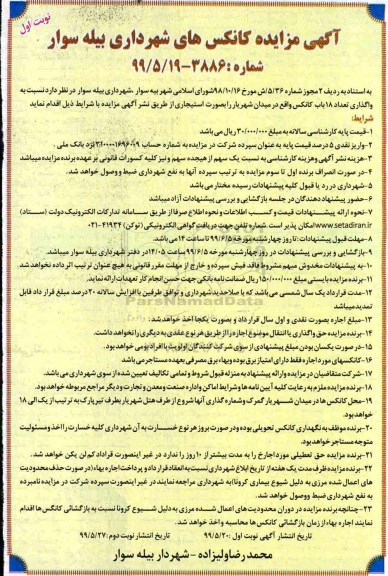 نوبت اول
آگهی مزایده کانکس های شهرداری بیله سوار
شماره :۳۸۸۶-۹۹/۵/۱۹
به استناد به ردیف ۲ مجوز شماره ۵/۳۶/ش مورخ ۹۸/۱۰/۱۶ شورای اسلامی شهر بیله سوار ،شهرداری بیله سوار در نظر دارد نسبت به
واگذاری تعداد ۱۸ باب کانکس واقع در میدان شهریار را بصورت استیجاری از طریق نشر آگهی مزایده با شرایط ذیل اقدام نماید
شرایط:
۱-قیمت پایه کارشناسی سالانه به مبلغ ۳۰/۰۰۰/۰۰۰ ریال می باشد
۲-واریز نقدی ۵ درصد قیمت پایه به عنوان سپرده شرکت در مزایده به شماره حساب نزد بانک ملی .
۳-هزینه نشر آگهی وهزینه کارشناسی به نسبت یک سهم از هیجده سهم و نیز کلیه کسورات قانونی بر عهده برنده مزایده میباشد
۴-در صورت انصراف برنده اول تا سوم مزایده به ترتیب سپرده آنها به نفع شهرداری ضبط و وصول خواهد شد.
۵-شهرداری در رد یا قبول کلیه پیشنهادات رسیده مختار می باشد
۶-حضور پیشنهاد دهندگان در جلسه بازگشایی و بررسی پیشنهادات آزاد میباشد
۷-نحوه ارائه پیشنهادات قیمت و کسب اطلاعات و نحوه اطلاع صرفا از طریق سامانه تدارکات الکترونیک دولت (ستاد)
www.setadiran.ir امکان پذیر است. شماره تلفن جهت دریافت گواهی الکترونیکی (توکن) ۴۱۹۳۴-۰۲۱
۸-مهلت قبول پیشنهادات :تا روز چهارشنبه مورخه ۹۹/۶/۵ تا ساعت ۱۴ می باشد.
۹-بازگشایی و بررسی پیشنهادات در روز چهارشنبه مورخه ۹۹/۶/۵ ساعت ۱۴:۰۵ در دفتر شهرداری بیله سوار میباشد.
۱۰-به پیشنهادات مخدوش مبهم مشروط فاقد فیش سپرده و خارج از مهلت مقرر قانونی به هیچ عنوان ترتیب اثر داده نخواهد شد.
۱۱-برنده مزایده بایستی مبلغ ۱۵۰/۰۰۰/۰۰۰ ریال ضمانت نامه بانکی جهت حسن انجام کار تعهدات ارائه نماید.
۱۲-مدت قرارداد یک سال شمسی می باشد که با صلاحدید شهرداری و توافق طرفین با افزایش سالانه ۲۰ درصد مبلغ قرار داد قابل
تمدید میباشد
۱۳-مبلغ اجاره بصورت نقدی و اول سال قرار داد و بصورت یکجا اخذ خواهد شد.
۱۴-برنده مزایده حق واگذاری یا انتقال موضوع اجاره را از طریق هر نوع عقدی به دیگری را نخواهد داشت.
۱۵-در صورت یکسان بودن مبلغ پیشنهادی از سوی شرکت کنندگان اولویت با افراد بومی خواهد بود.
۱۶-کانکسهای مورد اجاره فقط دارای امتیاز برق بوده وبهاء برق مصرفی بعهده مستاجر می باشد
۱۷-شرکت متقاضیان در مزایده و ارائه پیشنهاد به منزله قبول شروط و تمامی تکالیف تعیین شده از سوی شهرداری می باشد.
۱۸-برنده مزایده ملزم به رعایت کلیه آیین نامه ها و شرایط اماکن و اداره صنعت و معدن و تجارت و دیگر مراجع مربوطه خواهد بود.
۱۹-محل کانکس ها در میدان شهریار گمرک و شماره گذاری آنها شروع از طرف هتل شهریار بطرف تیر پارک به ترتیب از یک الی ۱۸
خواهد بود.
۲۰-برنده موظف به نگهداری کانکس تحویلی بوده و در صورت بروز هر نوع خسارت به آن شهرداری کلیه خسارت را اخذ و مسئولیت
متوجه مستاجر خواهد بود.
۲۱-برنده مزایده حق تعطیلی مورد اجاره را به مدت بیشتر از ۱۰ روز را ندارد در غیر اینصورت قرارداد کم لن یکن خواهد شد.
۲۲-برنده مزایده ظرف مدت یک هفته از تاریخ ابلاغ شهرداری نسبت به انعقاد قرارداد و پرداخت اجاره بهاء (در صورت حذف محدودیت
های اعمال شده مرزی به دلیل شیوع بیماری کرونا) به شهرداری مراجعه نمایند در غیر اینصورت سپرده شرکت در مزایده نامبرده
به نفع شهرداری ضبط و وصول خواهد شد.
۲۳-چنانچه برنده مزایده در دوران محدودیت های اعمال شده مرزی به دلیل شیوع کرونا نسبت به بازگشائی کانکس ها اقدام
نمایند اجاره بهاء از زمان بازگشائی کانکس ها محاسبه و اخذ خواهد شد.
تاریخ انتشار آگهی نوبت اول :۹۹/۵/۲۰ تاریخ انتشار نوبت دوم :۹۹/۵/۲۷
محمد رضا ولیزاده - شهردار بیله سوار
ParsNamadData